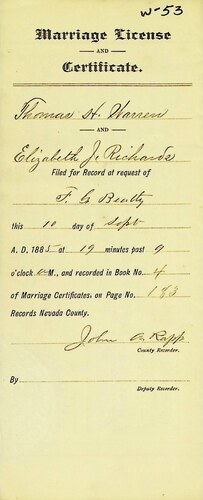 W-53
Marriage License
AND
Certificate.
Thomas H. Warren
AND
Elizabeth J. Richards
Filed for Record at request of
F. G. Beatty
this 10 day of Sept
A. D. 1885 at 19 minutes past 9
o'clock A M., and recorded in Book No. 4
of Marriage Certificates, on Page No. 183
Records Nevada County.
John A. Rapp
County Recorder.
By
Deputy Recorder.